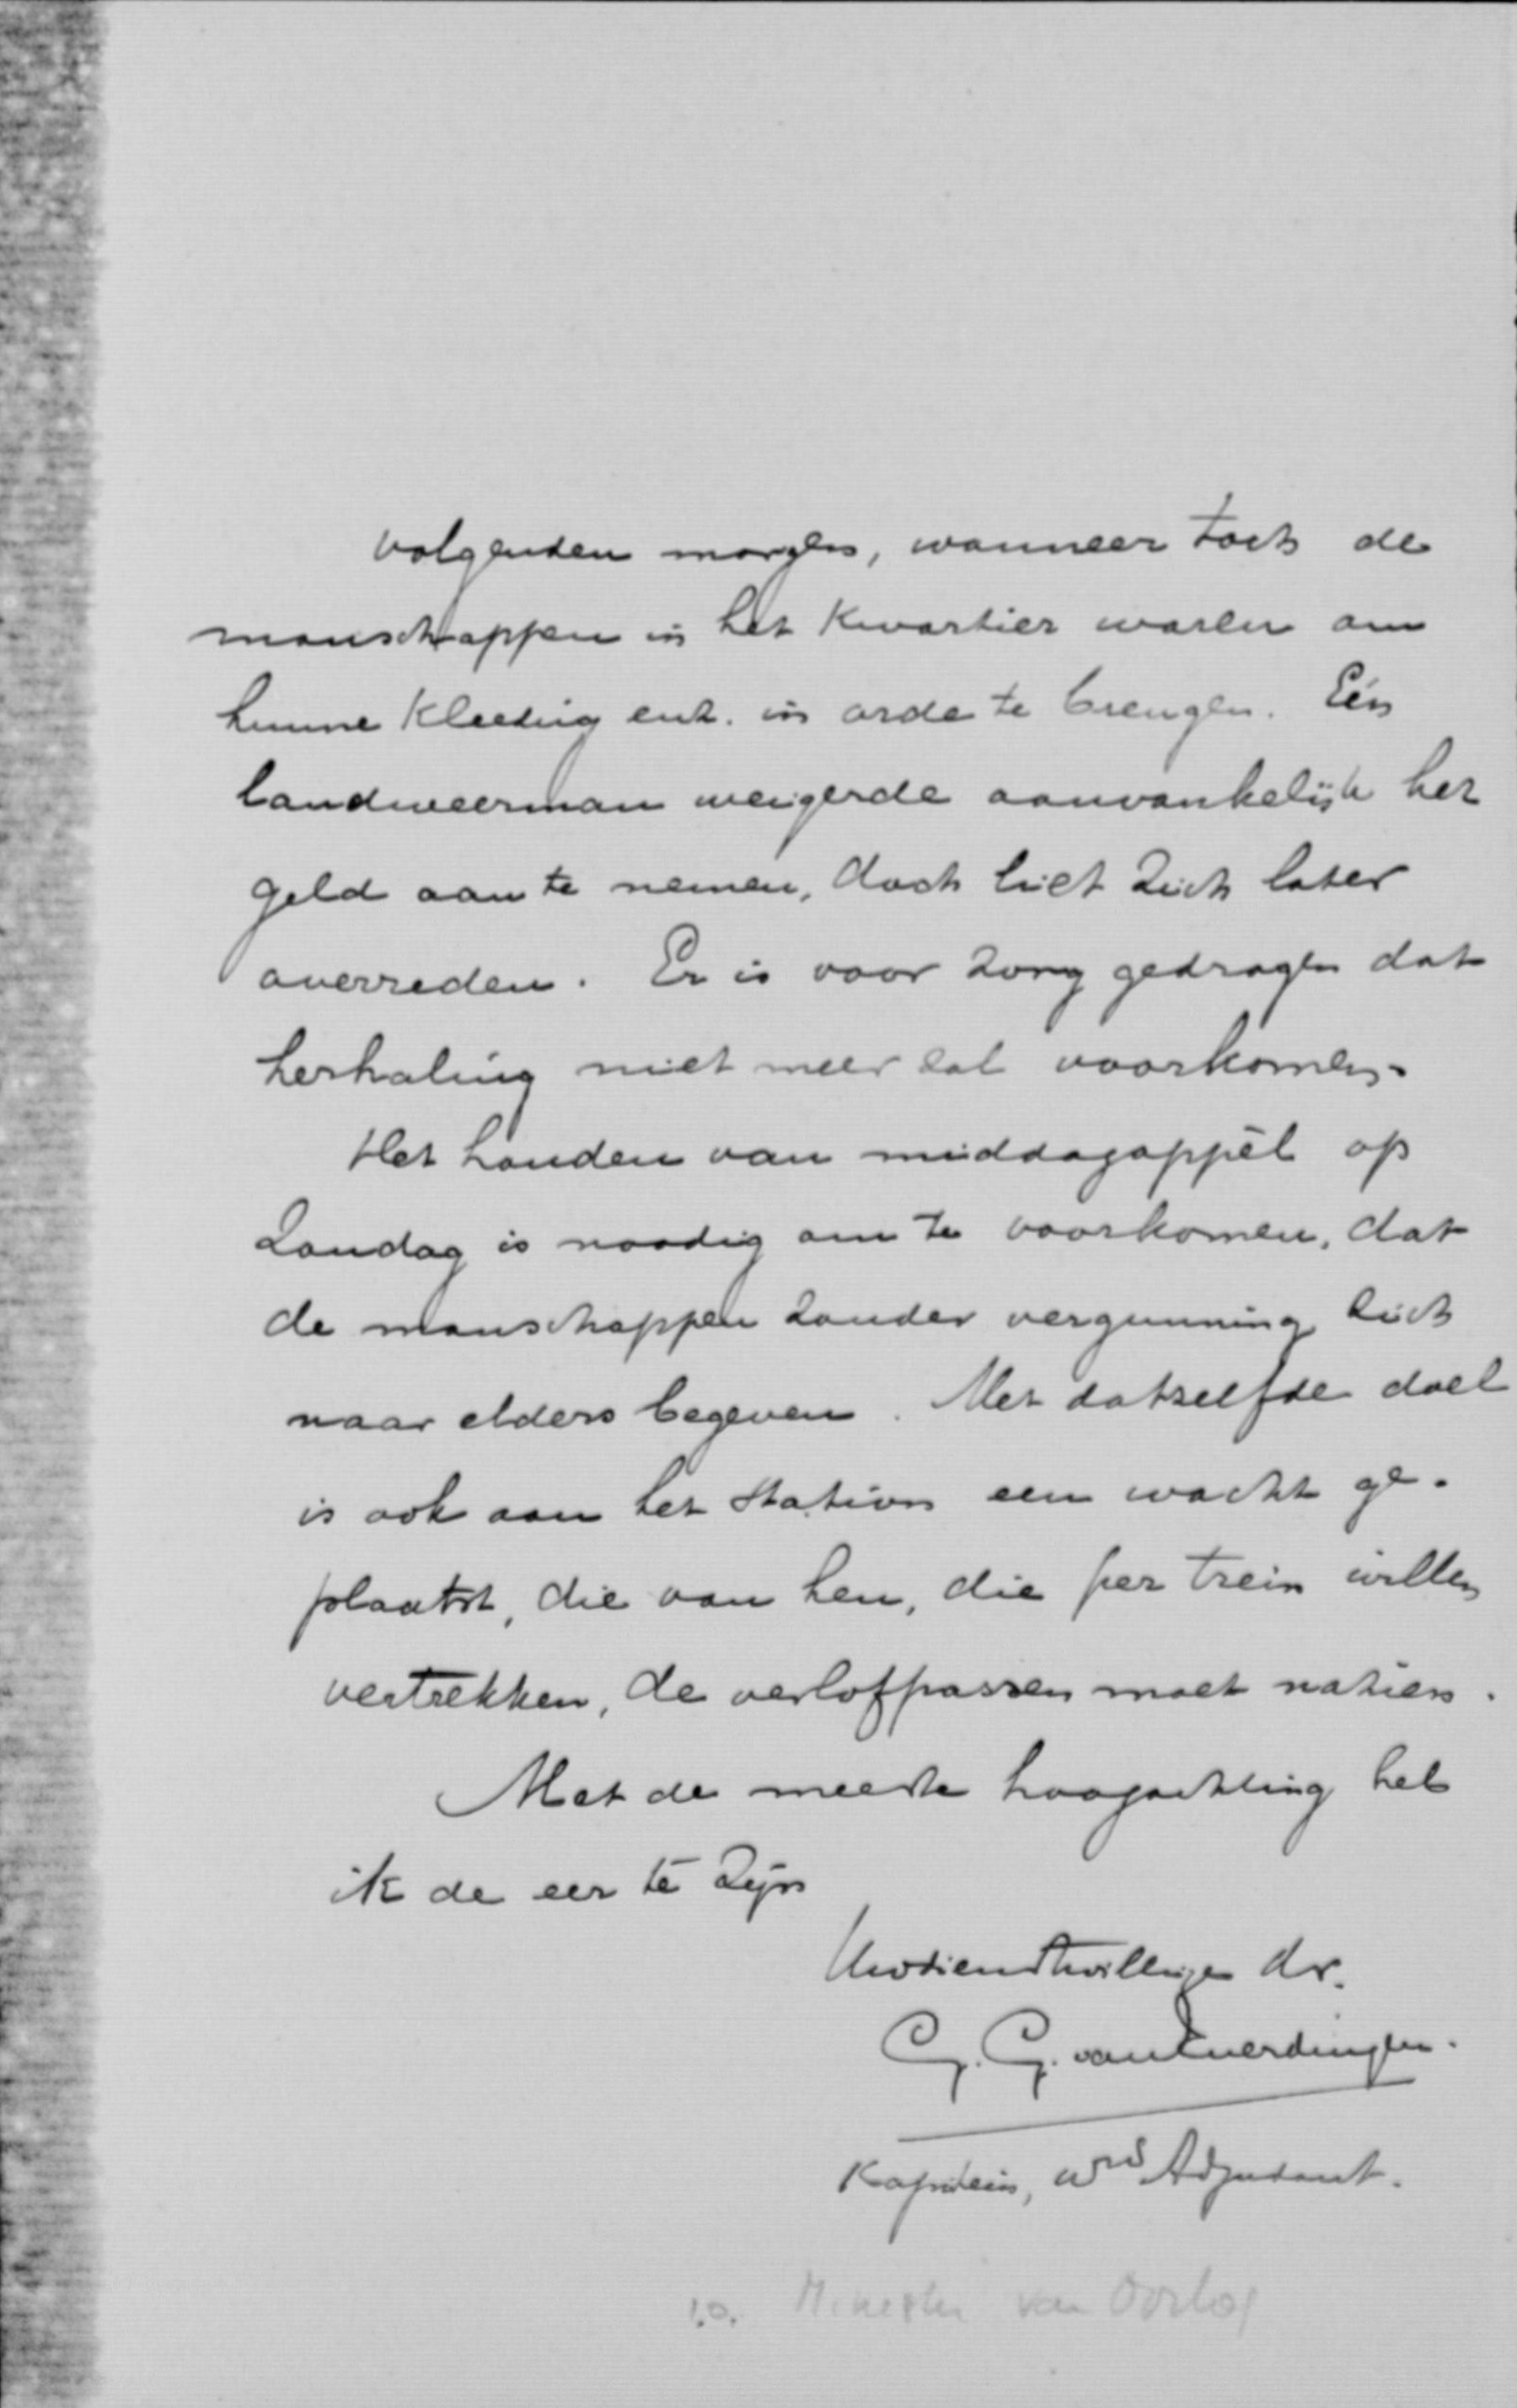 volgenden morgen, wanneer toch de
manschappen in het kwartier waren om
hunne kleeding enz. in orde te brengen. Eén
landweerman weigerde aanvankelijk het
geld aan te nemen, doch liet zich later
overreden. Er is voor zorg gedragen dat
herhaling niet meer zal voorkomen.
Het houden van middagappèl op
Zondag is noodig om te voorkomen, dat
de manschappen zonder vergunning zich
naar elders begeven. Met datzelfde doel
is ook aan het station een wacht ge-
plaatst, die van hen, die per trein willen
vertrekken, de verlofpassen moet nazien.
Met de meeste hoogachting heb
ik de eer te zijn
Uwdienstwillige dr.
G. G. van Everdingen.
Kapitein, wnd Adjudant.
Minister van Oorlog